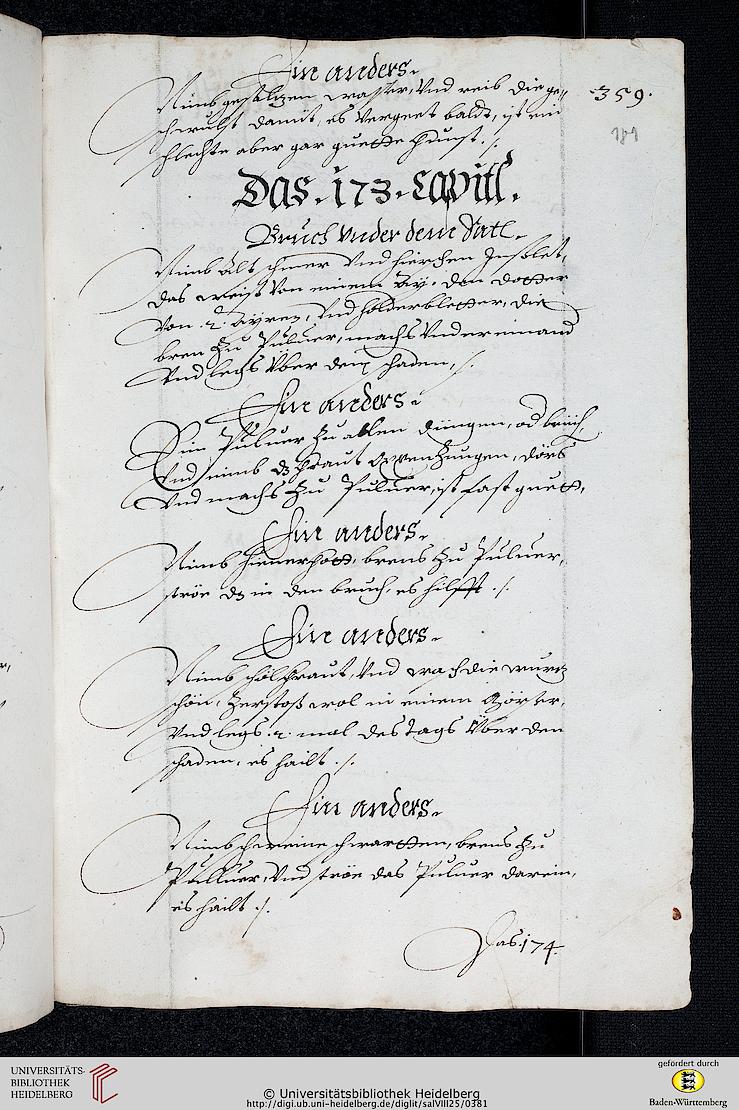 Ein anders.
Nimb gesaltzen wasser, Vnd reib die ge„
schwulst damit, es Vergeet baldt, ist ein
schlechte aber gar guette khunst ./.
.359.
181
Das .173. Capitl.
Bruch Vnder dem Satl.
Nimb alt schmer Vnd hierschen Inslet,
das weiß Von einem Ay, den dotter
Von .2. Ayren, Vnd holderbletter, die
bren Zu Puluer, machs Vndereinand
Vnd legs Über den schaden ./.
Ein anders.
Ein Puluer Zu allen dingen, od brüch
Vnd nimb dz khraut Oxenzungen, dörs
Vnd machs Zu Puluer, ist fast guett,
Ein anders.
Nimb hienerkhott, brens Zu Puluer,
ströe dz in den bruch, es hilfft ./.
Ein anders.
Nimb khölkhraut, Vnd wasch die wurtz
schön, Zerstoß wol in einem Mörser,
Vnd legs .2. mal des tags Über den
schaden, es hailt ./.
Ein anders.
Nimb schweine schwartten, brens Zu
Pulluer, Vnd ströe das Puluer darein,
es hailt ./.
Das .174.
UNIVERSITÄTS-
BIBLIOTHEK
HEIDELBERG
© Universitätsbibliothek Heidelberg
http://digi.ub.uni-heidelberg.de/diglit/salVIII25/0381
gefördert durch
Baden-Württemberg